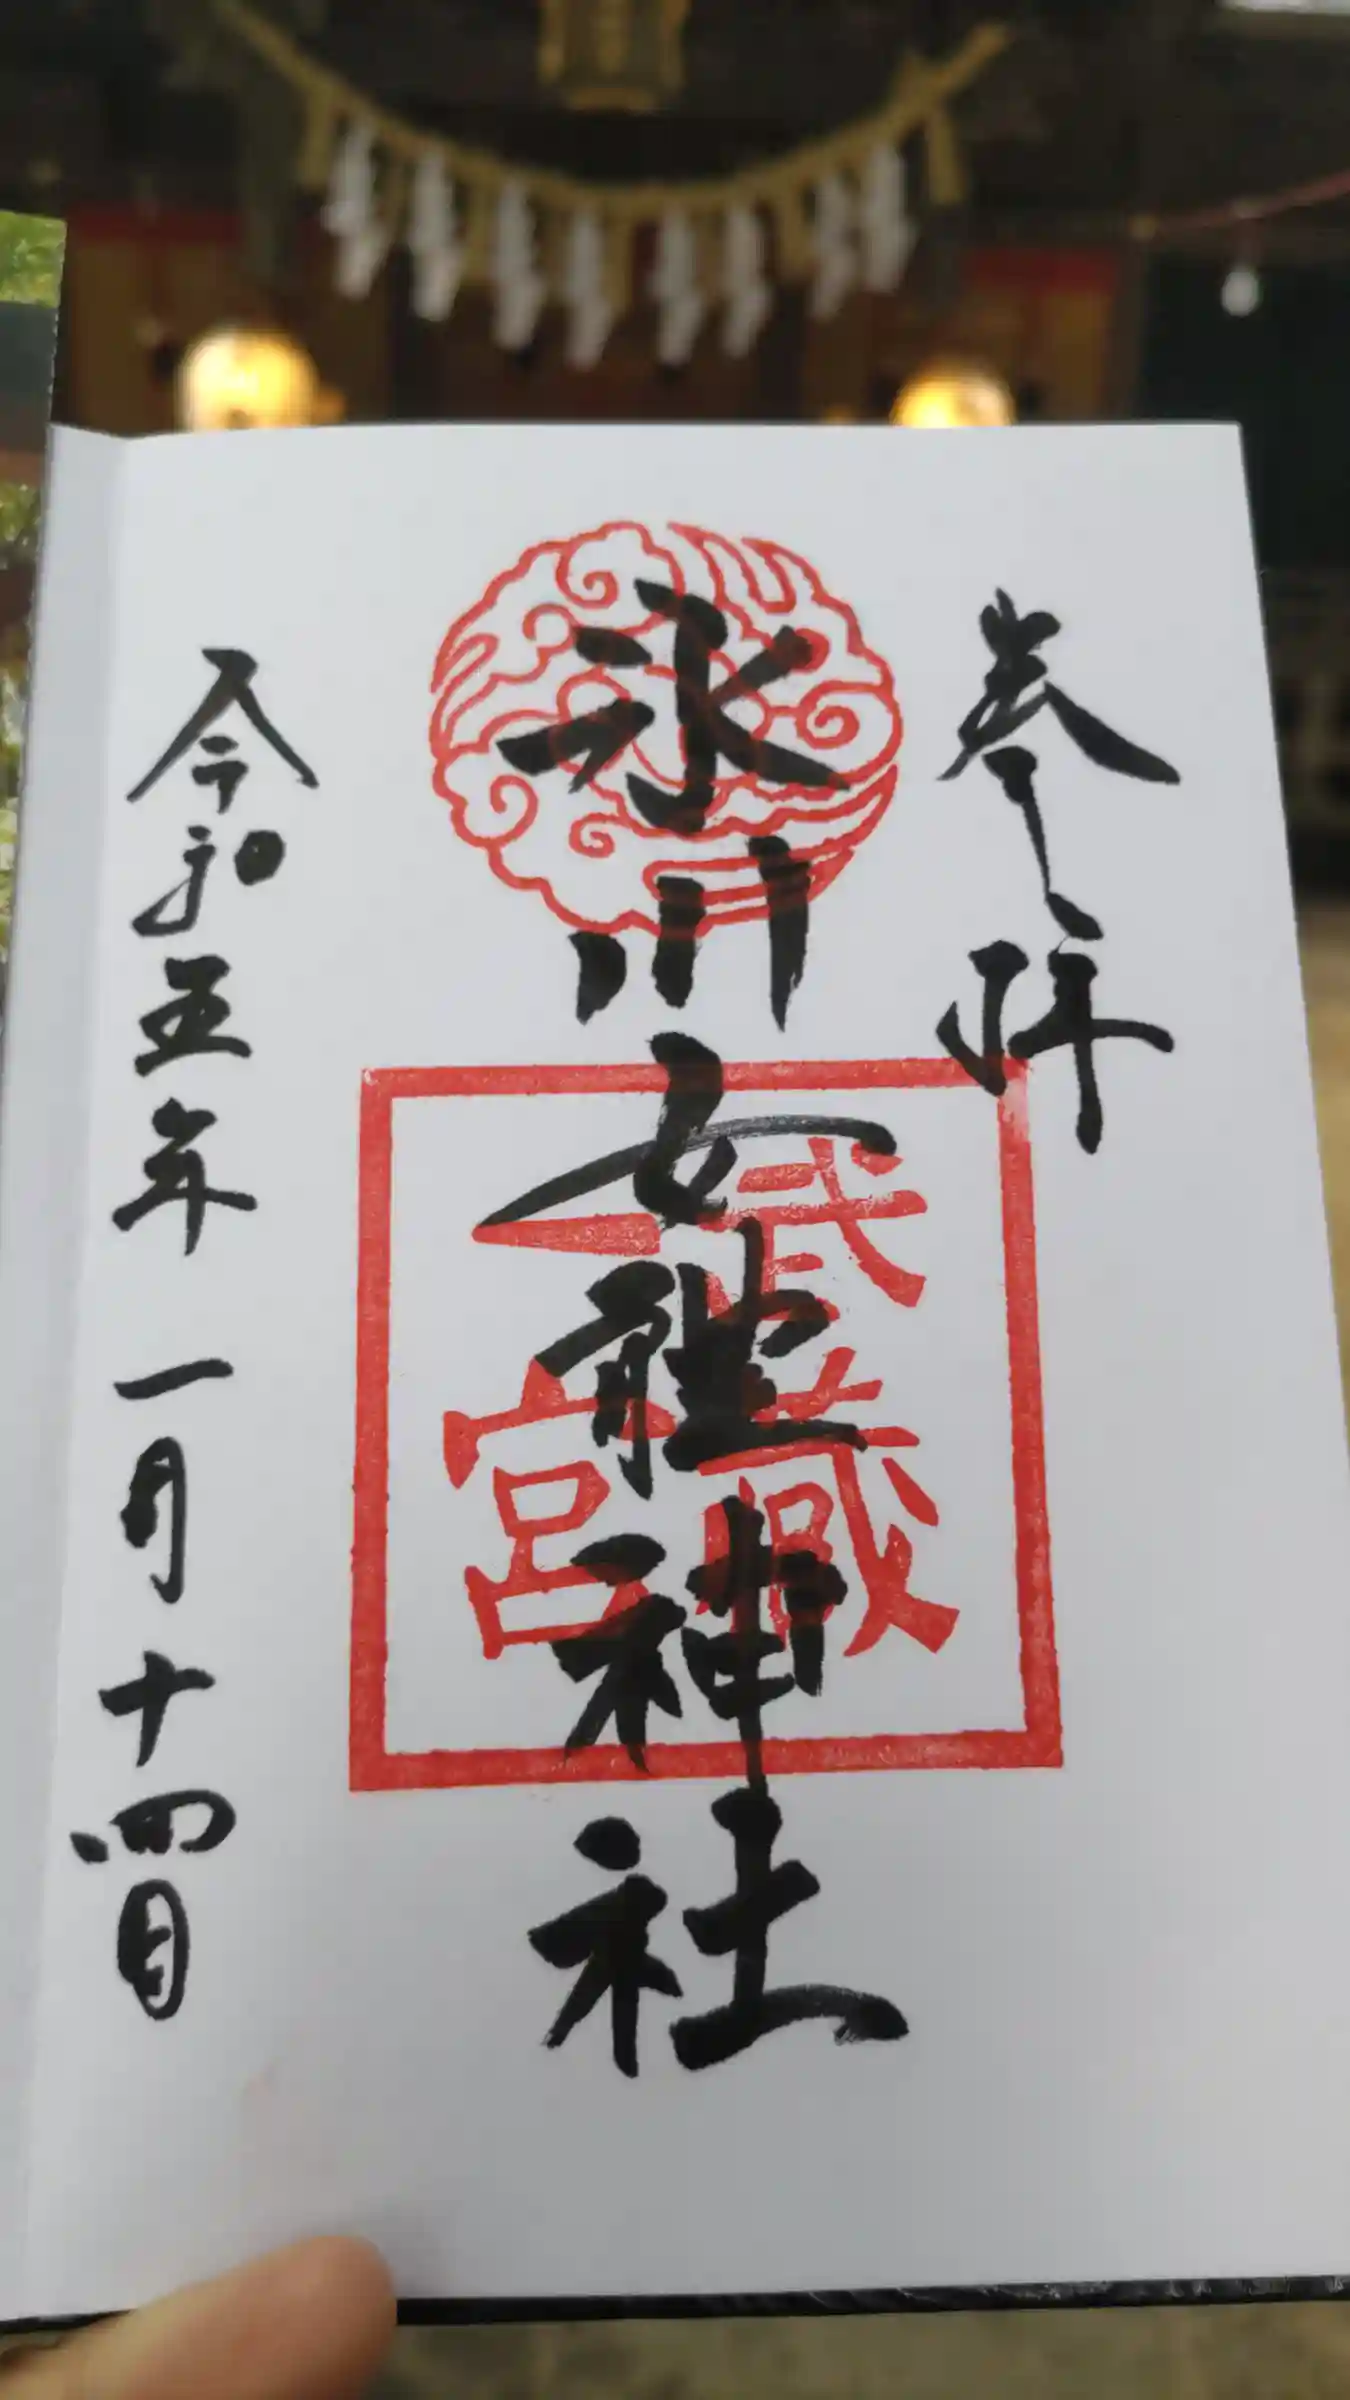 参拝
氷川女體神社
武蔵
一宮
令和五年一月十四日